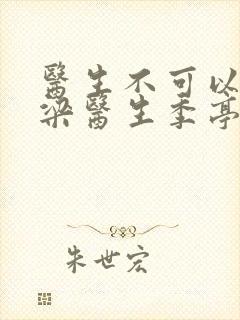 醫生不可以
梁醫生季亭
朱世宏